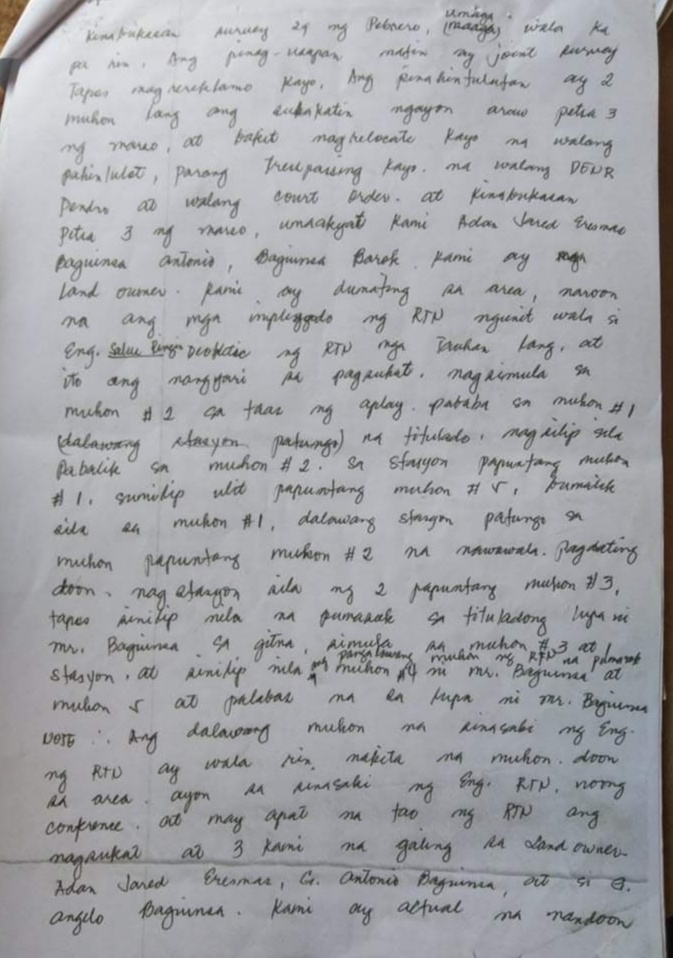 Kinabukasan survey 29 ng Pebrero, umaga (maaga) wala ka
pa rin. Ang pinag-usapan natin ay joint survey
Tapos magrereklamo kayo. Ang pinahintulutan ay 2
muhon lang ang susukatin ngayon araw petsa 3
ng marso, at bakit nagrelocate kayo na walang
pahintulot, parang trespassing kayo. na walang DENR
Penro at walang court order. at kinabukasan
petsa 3 ng marso, umaakyat kami Adan Jared Eresmas
Baguinsa antonio, Baguinsa Barok. kami ay mga
Land owner. kami ay dumating sa area, naroon
na ang mga impleyado ng RTN ngunit wala si
Eng. ng RTN mga Tauhan lang, at
ito ang nangyari sa pagsukat. nagsimula sa
muhon #2 sa taas ng aplay. pababa sa muhon #1
(dalawang stasyon patungo) na titulado. nagsilip sila
Pabalik sa muhon #2. sa stasyon papuntang muhon
#1, sumilip ulit papuntang muhon # 5, bumalik
sila sa muhon #1, dalawang stasyon patungo sa
muhon papuntang muhon #2 na nawawala. Pagdating
doon, nag stasyon sila ng 2 papuntang muhon #3,
tapos sinilip nila na pumasok sa tituladong lupa ni
mr. Baguinsa sa gitna, simula sa muhon #3 at
stasyon. at sinilip nila ang pangalawang muhon ng RTN na pumasok muhon #4 ni mr. Baguinsa at
muhon 5 at palabas na sa lupa ni mr. Baguinsa
NOTE: Ang dalawang muhon na sinasabi ng Eng.
ng RTN ay wala rin nakita na muhon doon
sa area. ayon sa sinasabi ng Eng. RTN, noong
conference. at may apat na tao ng RTN ang
nagsukat at 3 kami na galing sa Land owner
Adan Jared Eresmas, Antonio Baguinsa, at si
angelo Baguinsa. kami ay actual na nandoon